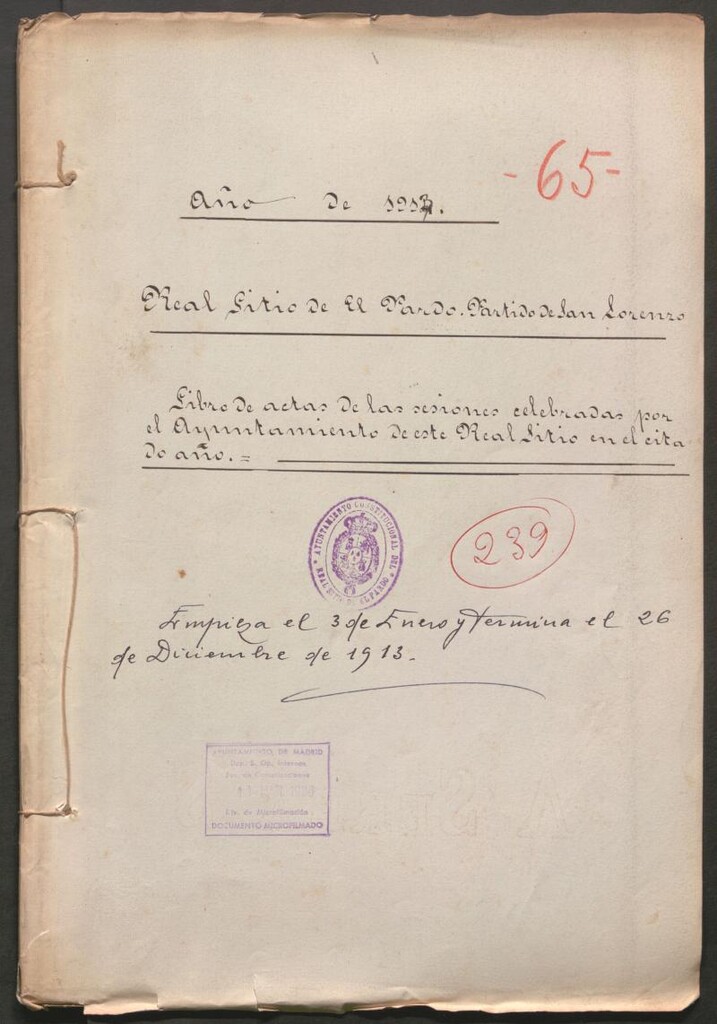 - 65 -
Año de 1913.
Real Sitio de El Pardo. Partido de San Lorenzo
Libro de actas de las sesiones celebradas por
el Ayuntamiento de este Real Sitio en el cita
do año. =
AYUNTAMIENTO CONSTITUCIONAL DEL
REAL SITIO DE EL PARDO
239
Empieza el 3 de Enero y termina el 26
de Diciembre de 1913.
AYUNTAMIENTO DE MADRID
de Microfilmación
DOCUMENTO MICROFILMADO